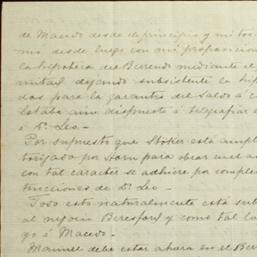 de Macedo desde el principio y mi bos
mo desde luego con mi proposicion
la hipoteca de Berrendo mediante el
mitad dejando subsistente la hip
das para la garantia del saldo á c
Estaba aun dispuesto á telegrafiar e
á Dr. Leo.—
Por supuesto que Stoker está ampl
torizado por Stern para obrar en el as
con tal carácter se adhiere por comple
trucciones de Dr Leo.—
Todo esto naturalmente está sub
al negocio Beresford y como tal la
go á Macedo.—
Manuel debe estar ahora en el Ber